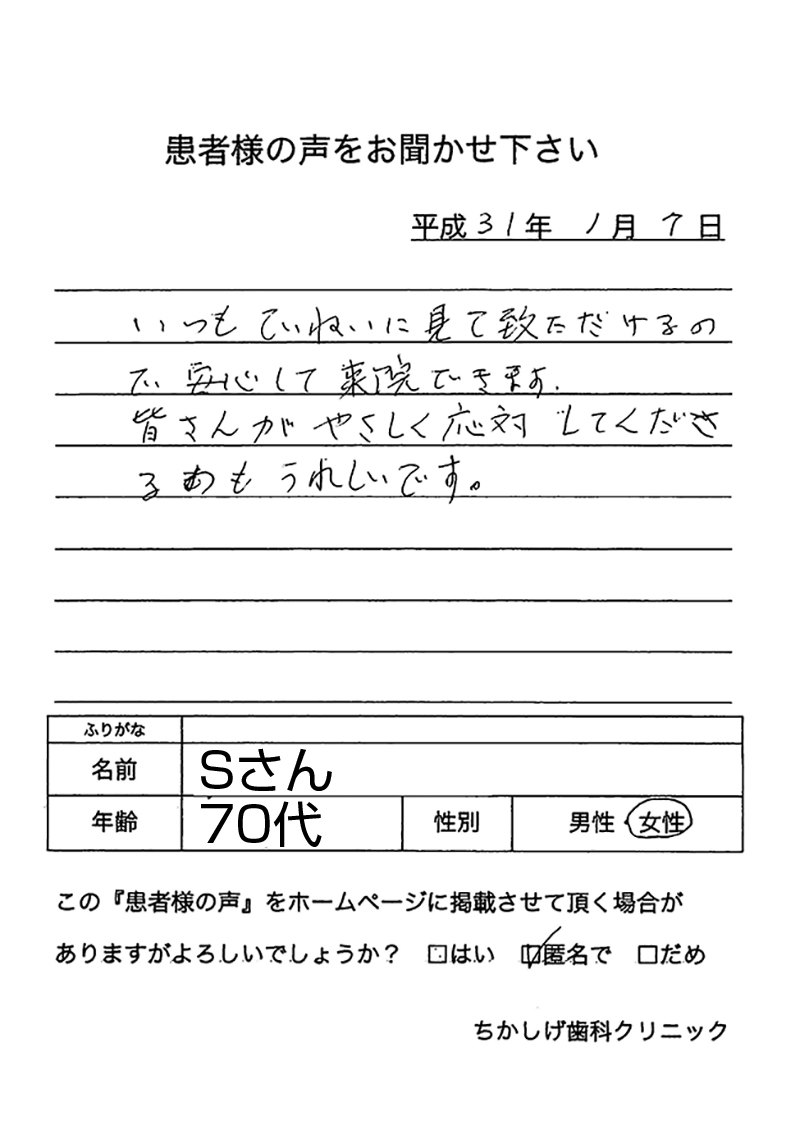 患者様の声をお聞かせ下さい
平成31年 1月7日
いつもていねいに見て致ただけるの
で、安心して来院できます.
皆さんがやさしく応対してくださ
るのもうれしいです。
ふりがな
名前 Sさん
年齢 70代 性別 男性・女性
この『患者様の声』をホームページに掲載させて頂く場合が
ありますがよろしいでしょうか？ □はい ☑匿名で □だめ
ちかしげ歯科クリニック